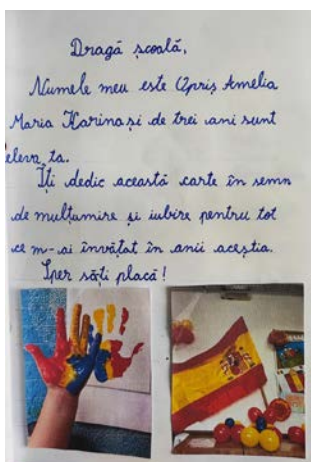 Dragă școală,
Numele meu este Opriș Amelia
Maria Karina și de trei ani sunt
eleva ta.
Îți dedic această carte în semn
de mulțumire și iubire pentru tot
ce m-ai învățat în anii aceștia.
Sper să-ți placă!